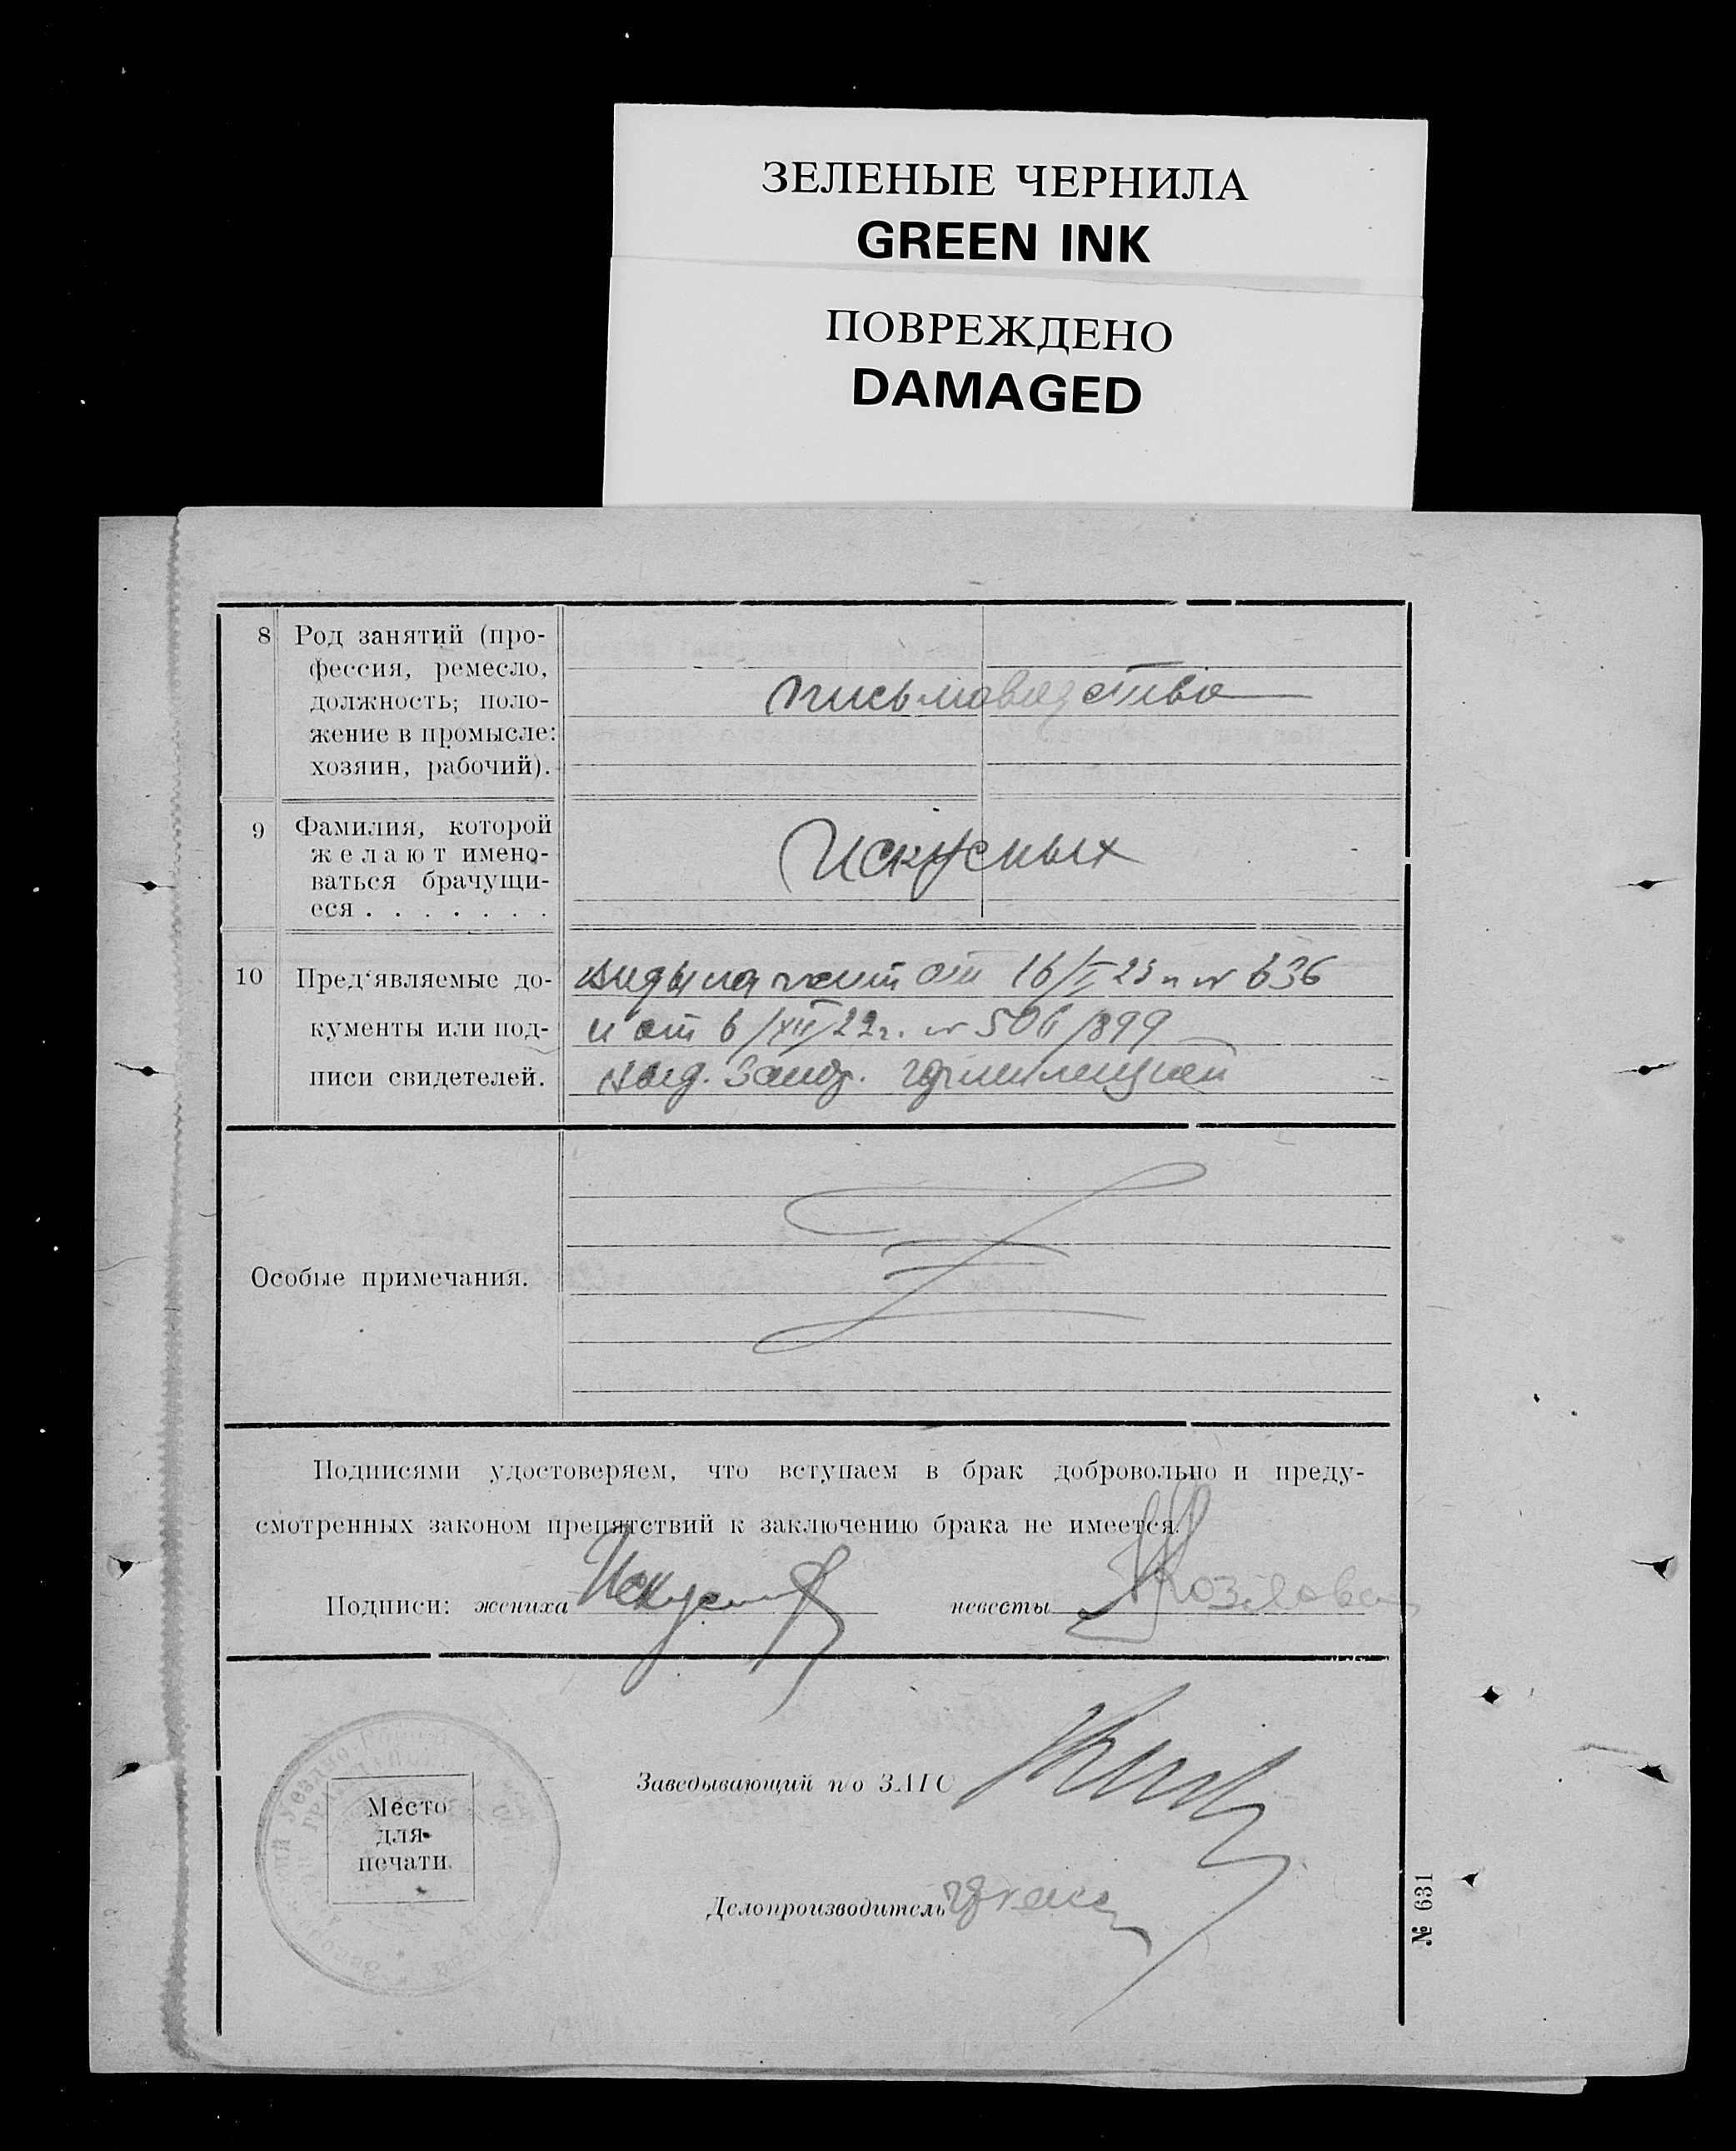 ЗЕЛЕНЫЕ ЧЕРНИЛА
GREEN INK
ПОВРЕЖДЕНО
DAMAGED
8 Род занятий (про-
фессия, ремесло,
должность; поло-
жение в промысле:
хозяин, рабочий).
письмоводство
9 Фамилия, которой
желают имено-
ваться брачущи-
еся . . . . . . .
Искусных
10 Пред'являемые до-
кументы или под-
писи свидетелей.
виды на жит от 16/I 23 г № 636
и от 6/XII 22 г. № 506/899
выд. Запор. гормилицией
Особые примечания.
Подписями удостоверяем, что вступаем в брак добровольно и преду-
смотренных законом препятствий к заключению брака не имеется.
Подписи: жениха Искусных невесты Козлова
Место
для
печати
Заведывающий п/о ЗАГС
Делопроизводитель
№ 631